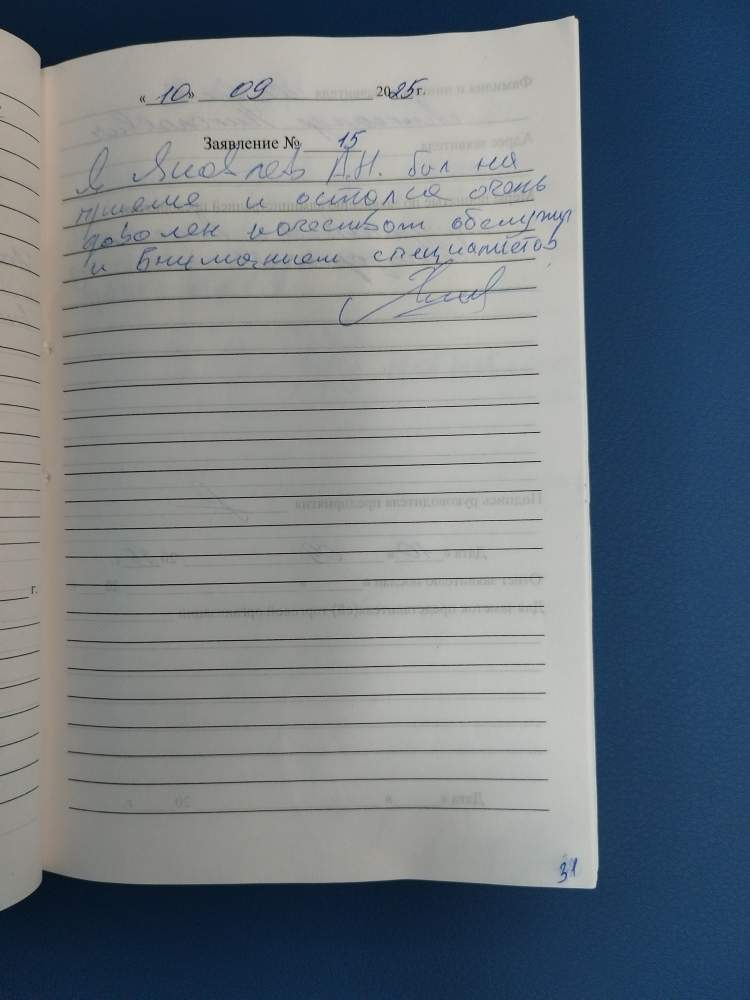 «10» 09 2025г.
Заявление № 15
Я Яковлев А.Н. был на
приеме и остался очень
доволен качеством обслужи
и вниманием специалистов
г.
31